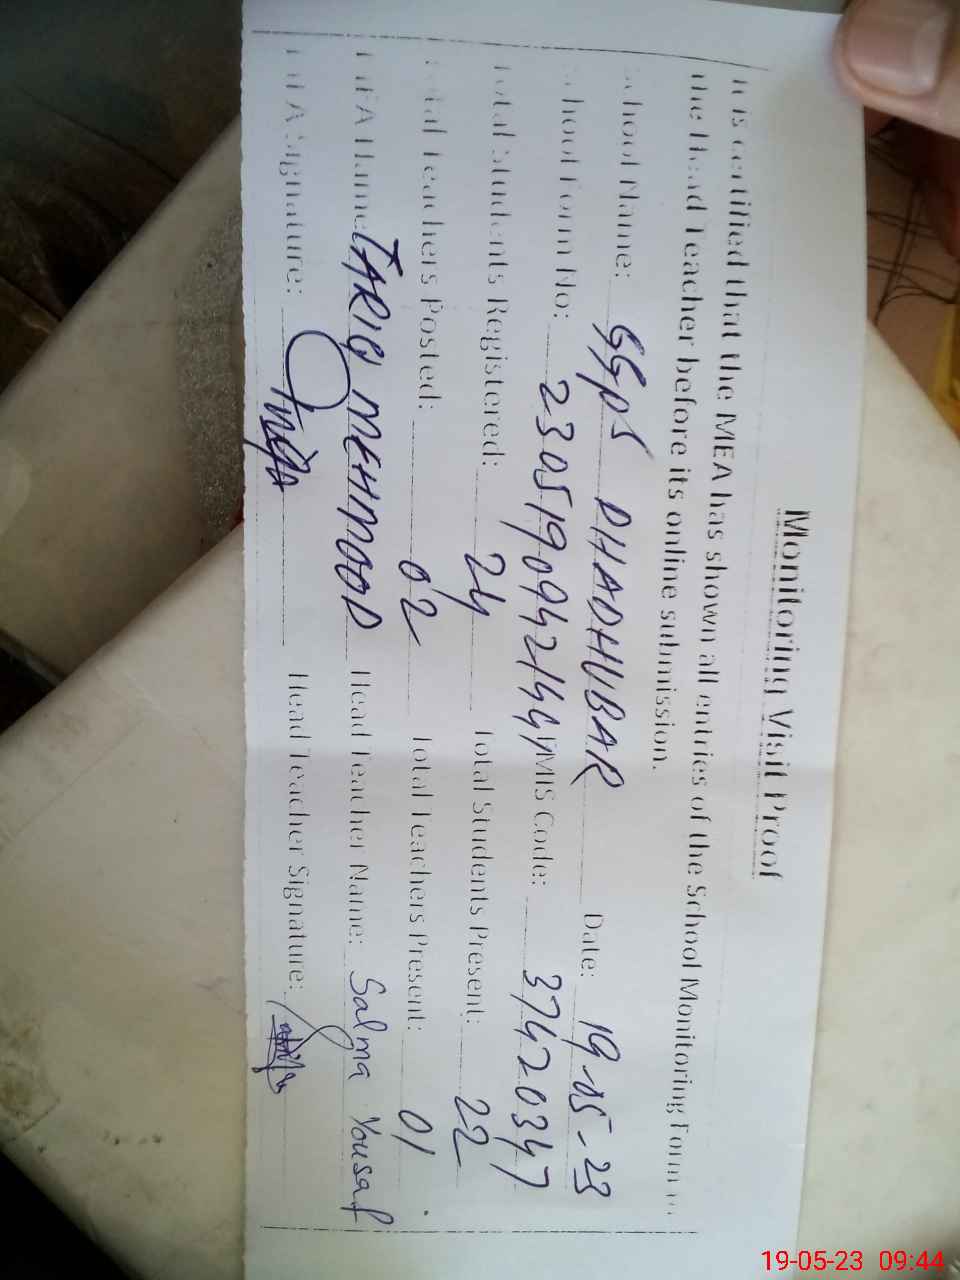 Monitoring Visit Proof
It is certified that the MEA has shown all entries of the School Monitoring Form to
the Head Teacher before its online submission.
School Name: GGPS DHADHUBAR Date: 19-05-23
School Form No: EMIS Code: 37420347
Total Students Registered: 24 Total Students Present: 22
Total Teachers Posted: 02 Total Teachers Present: 01
MEA Name: TARIQ MEHMOOD Head Teacher Name: Salma Yousaf
MEA Signature: Head Teacher Signature:
19-05-23 09:44